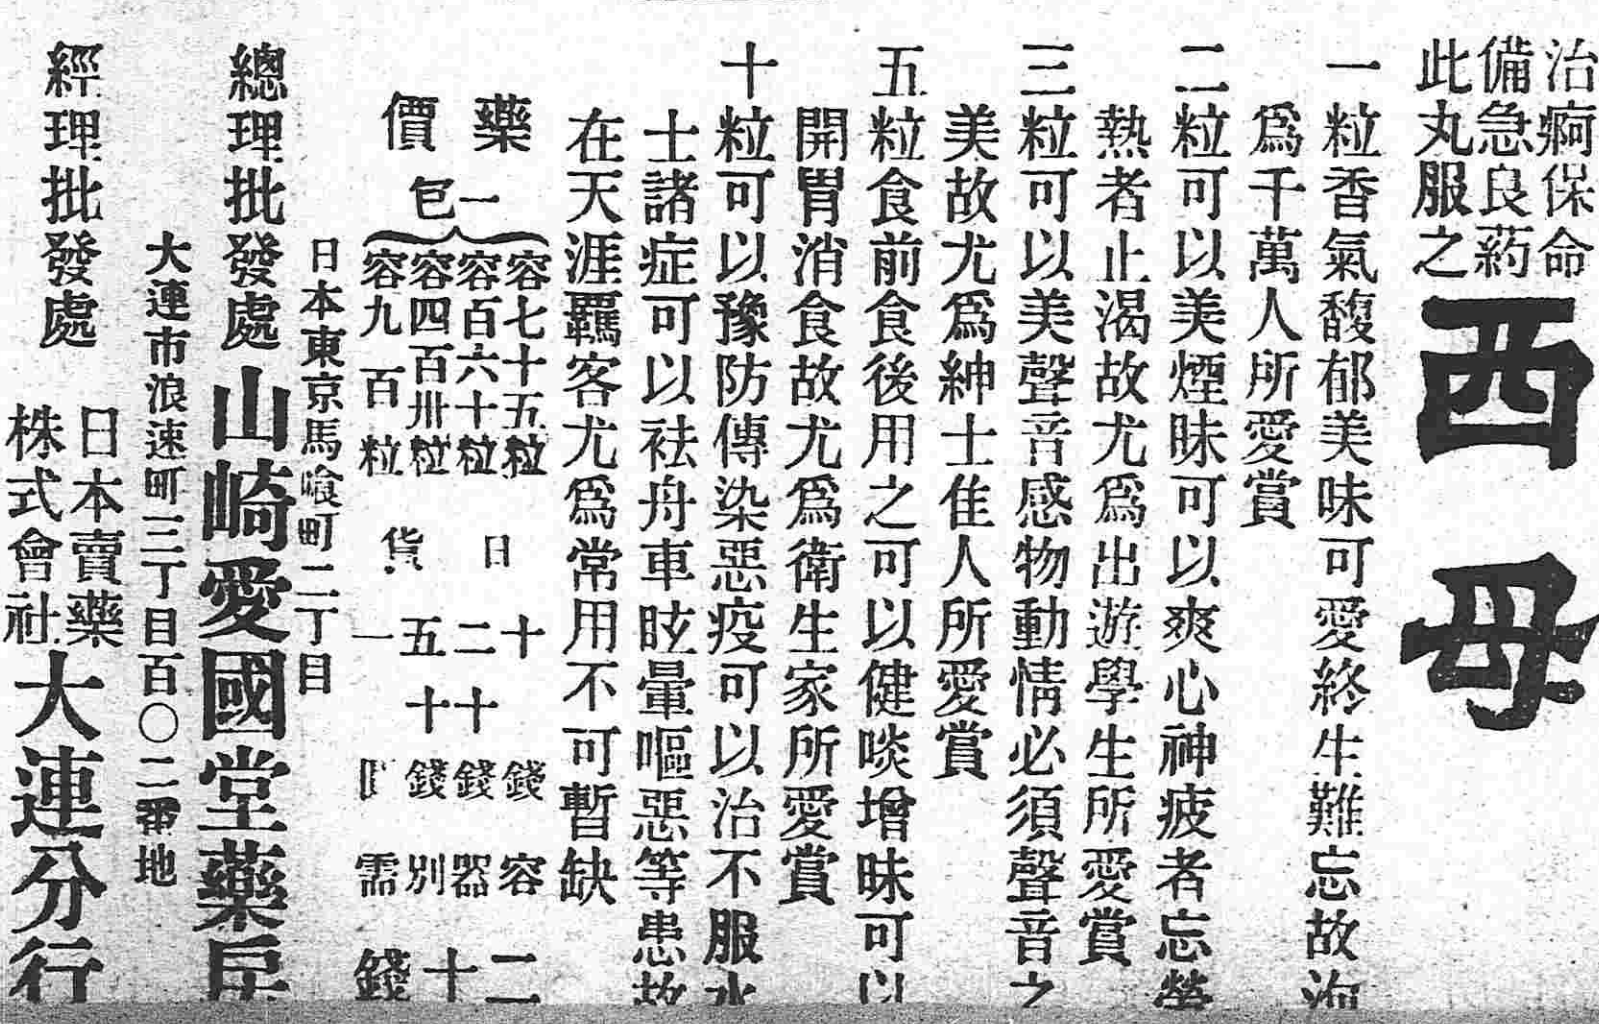 治痾保命
備急良葯
此丸服之
西母
一粒香氣馥郁美味可愛終生難忘故海
爲千萬人所愛賞
二粒可以美煙味可以爽心神疲者忘勞
熱者止渴故尤爲出遊學生所愛賞
三粒可以美聲音感物動情必須聲音之
美故尤爲紳士佳人所愛賞
五粒食前食後用之可以健啖增味可以
開胃消食故尤爲衛生家所愛賞
十粒可以豫防傳染惡疫可以治不服水
士諸症可以祛舟車眩暈嘔惡等患故
在天涯羈客尤爲常用不可暫缺
藥價
一包
容七十五粒 十錢
容百六十粒 二十錢
容四百卅粒 五十錢
容九百粒 一
日貨
容器別需
二十錢
日本東京馬喰町二丁目
總理批發處 山崎愛國堂藥房
大連市浪速町三丁目百〇二番地
經理批發處 日本賣藥株式會社 大連分行